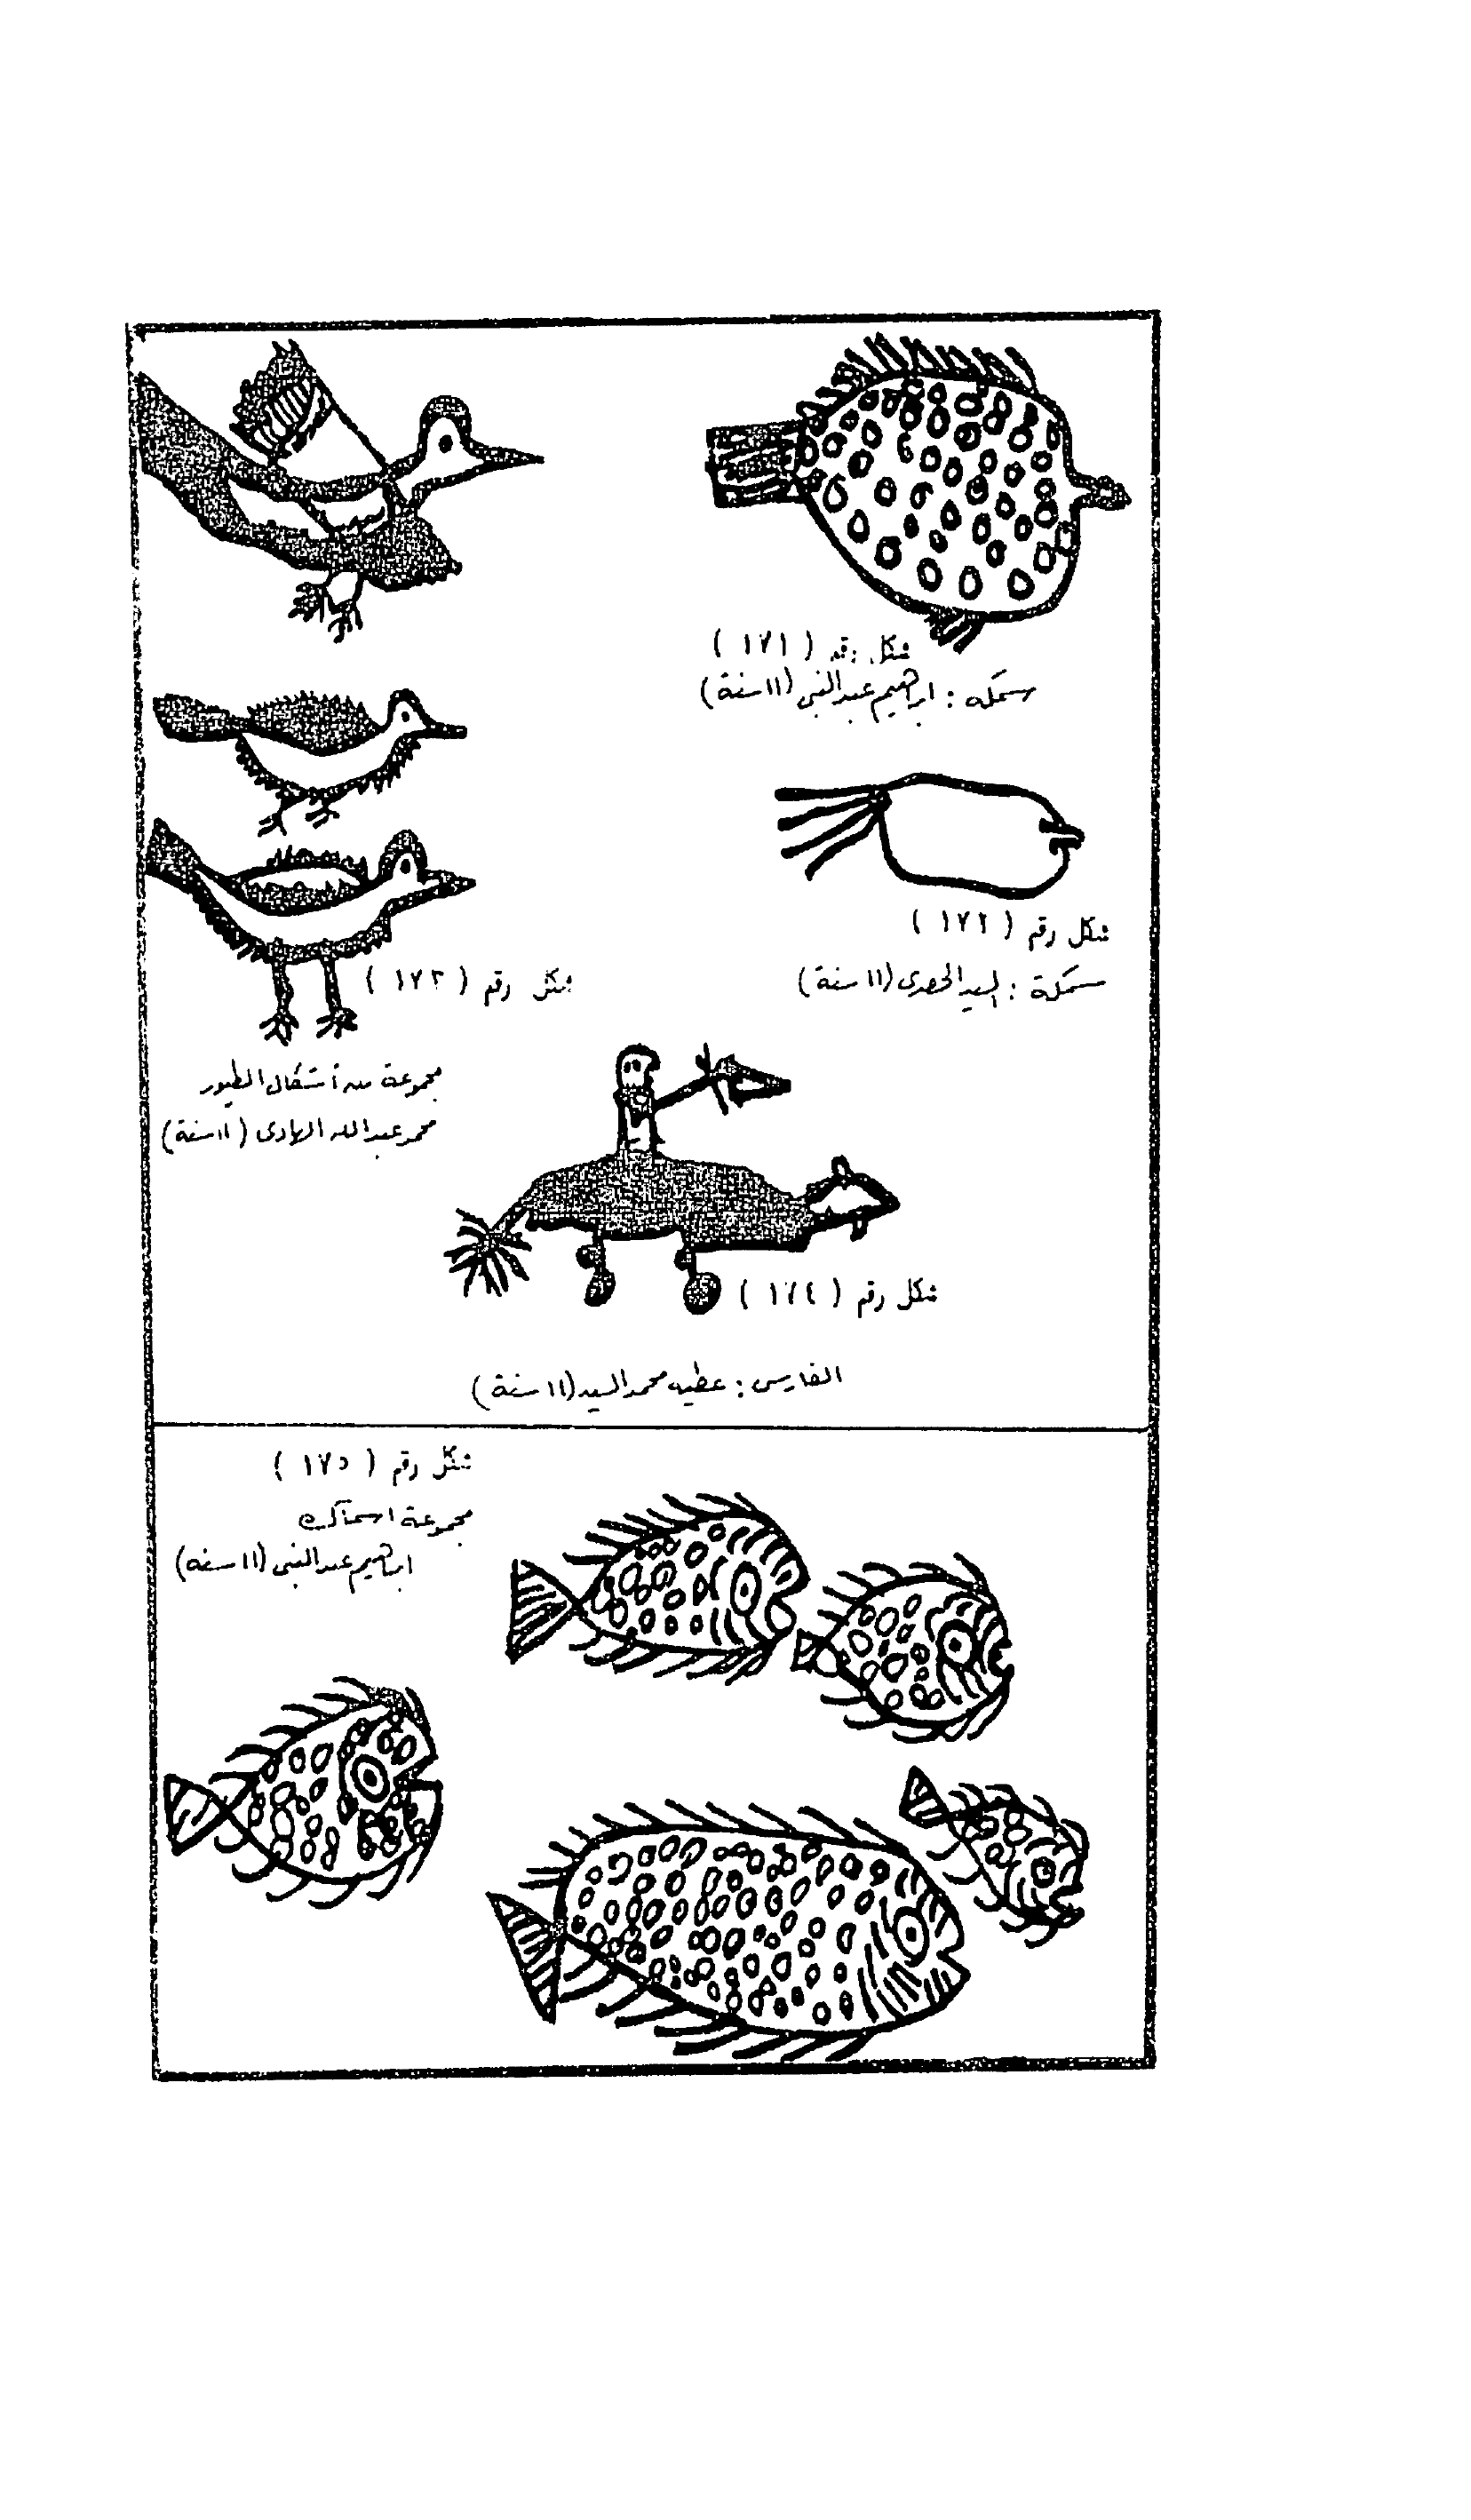 شكل رقم ( ١٧١ )
سمكه : ابراهيم عبدالنبى (١١ سنة)
شكل رقم ( ١٧٢ )
سمكة : السيد (١١ سنة)
شكل رقم ( ١٧٣ )
مجموعة من أشكال الطيور
محمد عبدالله الهادى (١١ سنة)
شكل رقم ( ١٧٤ )
الفارس : عطيه محمد السيد (١١ سنة)
شكل رقم ( ١٧٥ )
مجموعة اسماك
ابراهيم عبدالنبى (١١ سنه)